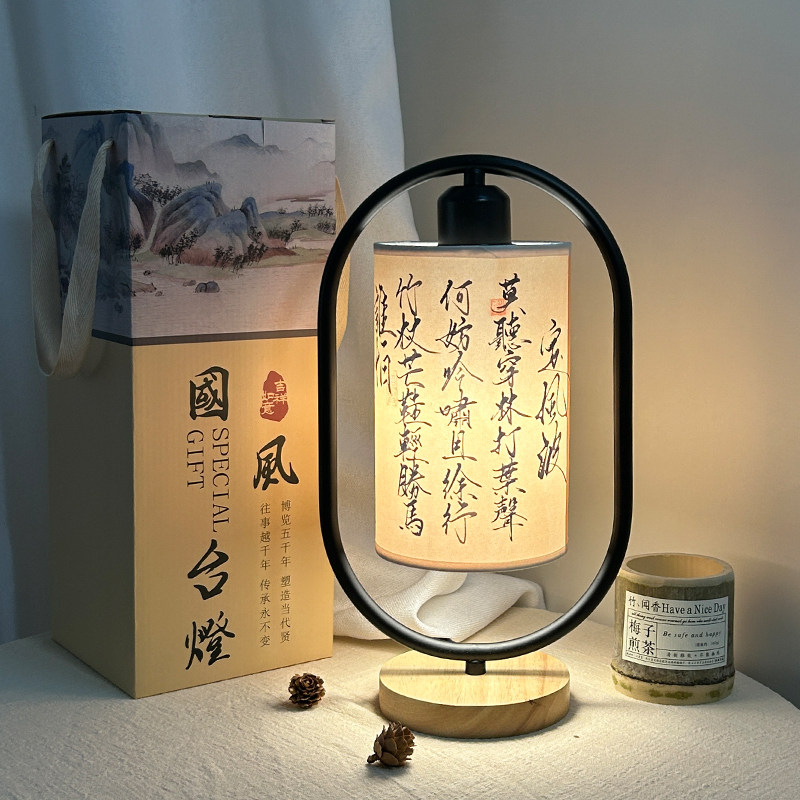 國風
台燈
吉祥如意
SPECIAL
GIFT
博览五千年 塑造当代贤
往事越千年 传承永不变
定風波
莫聽穿林打葉聲
何妨吟嘯且徐行
竹杖芒鞋輕勝馬
竹、闻香 Have a Nice Day
梅子
煎茶
Be safe and happy